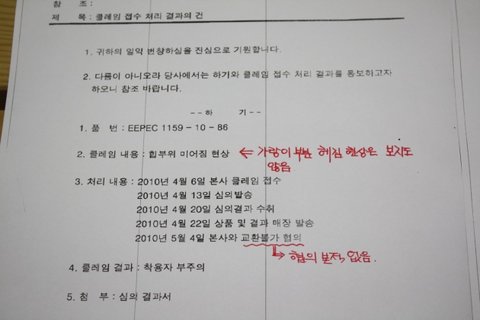 참 조 :
제 목 : 클레임 접수 처리 결과의 건
1. 귀하의 일익 번창하심을 진심으로 기원합니다.
2. 다름이 아니오라 당사에서는 하기와 클레임 접수 처리 결과를 통보하고자
하오니 참조 바랍니다.
--하 기--
1. 품 번 : EEPEC 1159 - 10 - 86
2. 클레임 내용 : 힙부위 미어짐 현상 ← 가랑이 부분 헤짐 현상은 보지도
않음
3. 처리 내용 : 2010년 4월 6일 본사 클레임 접수
2010년 4월 13일 심의발송
2010년 4월 20일 심의결과 수취
2010년 4월 22일 상품 및 결과 매장 발송
2010년 5월 4일 본사와 교환불가 협의
→ 협의 본적 없음.
4. 클레임 결과 : 착용자 부주의
5. 첨 부 : 심의 결과서